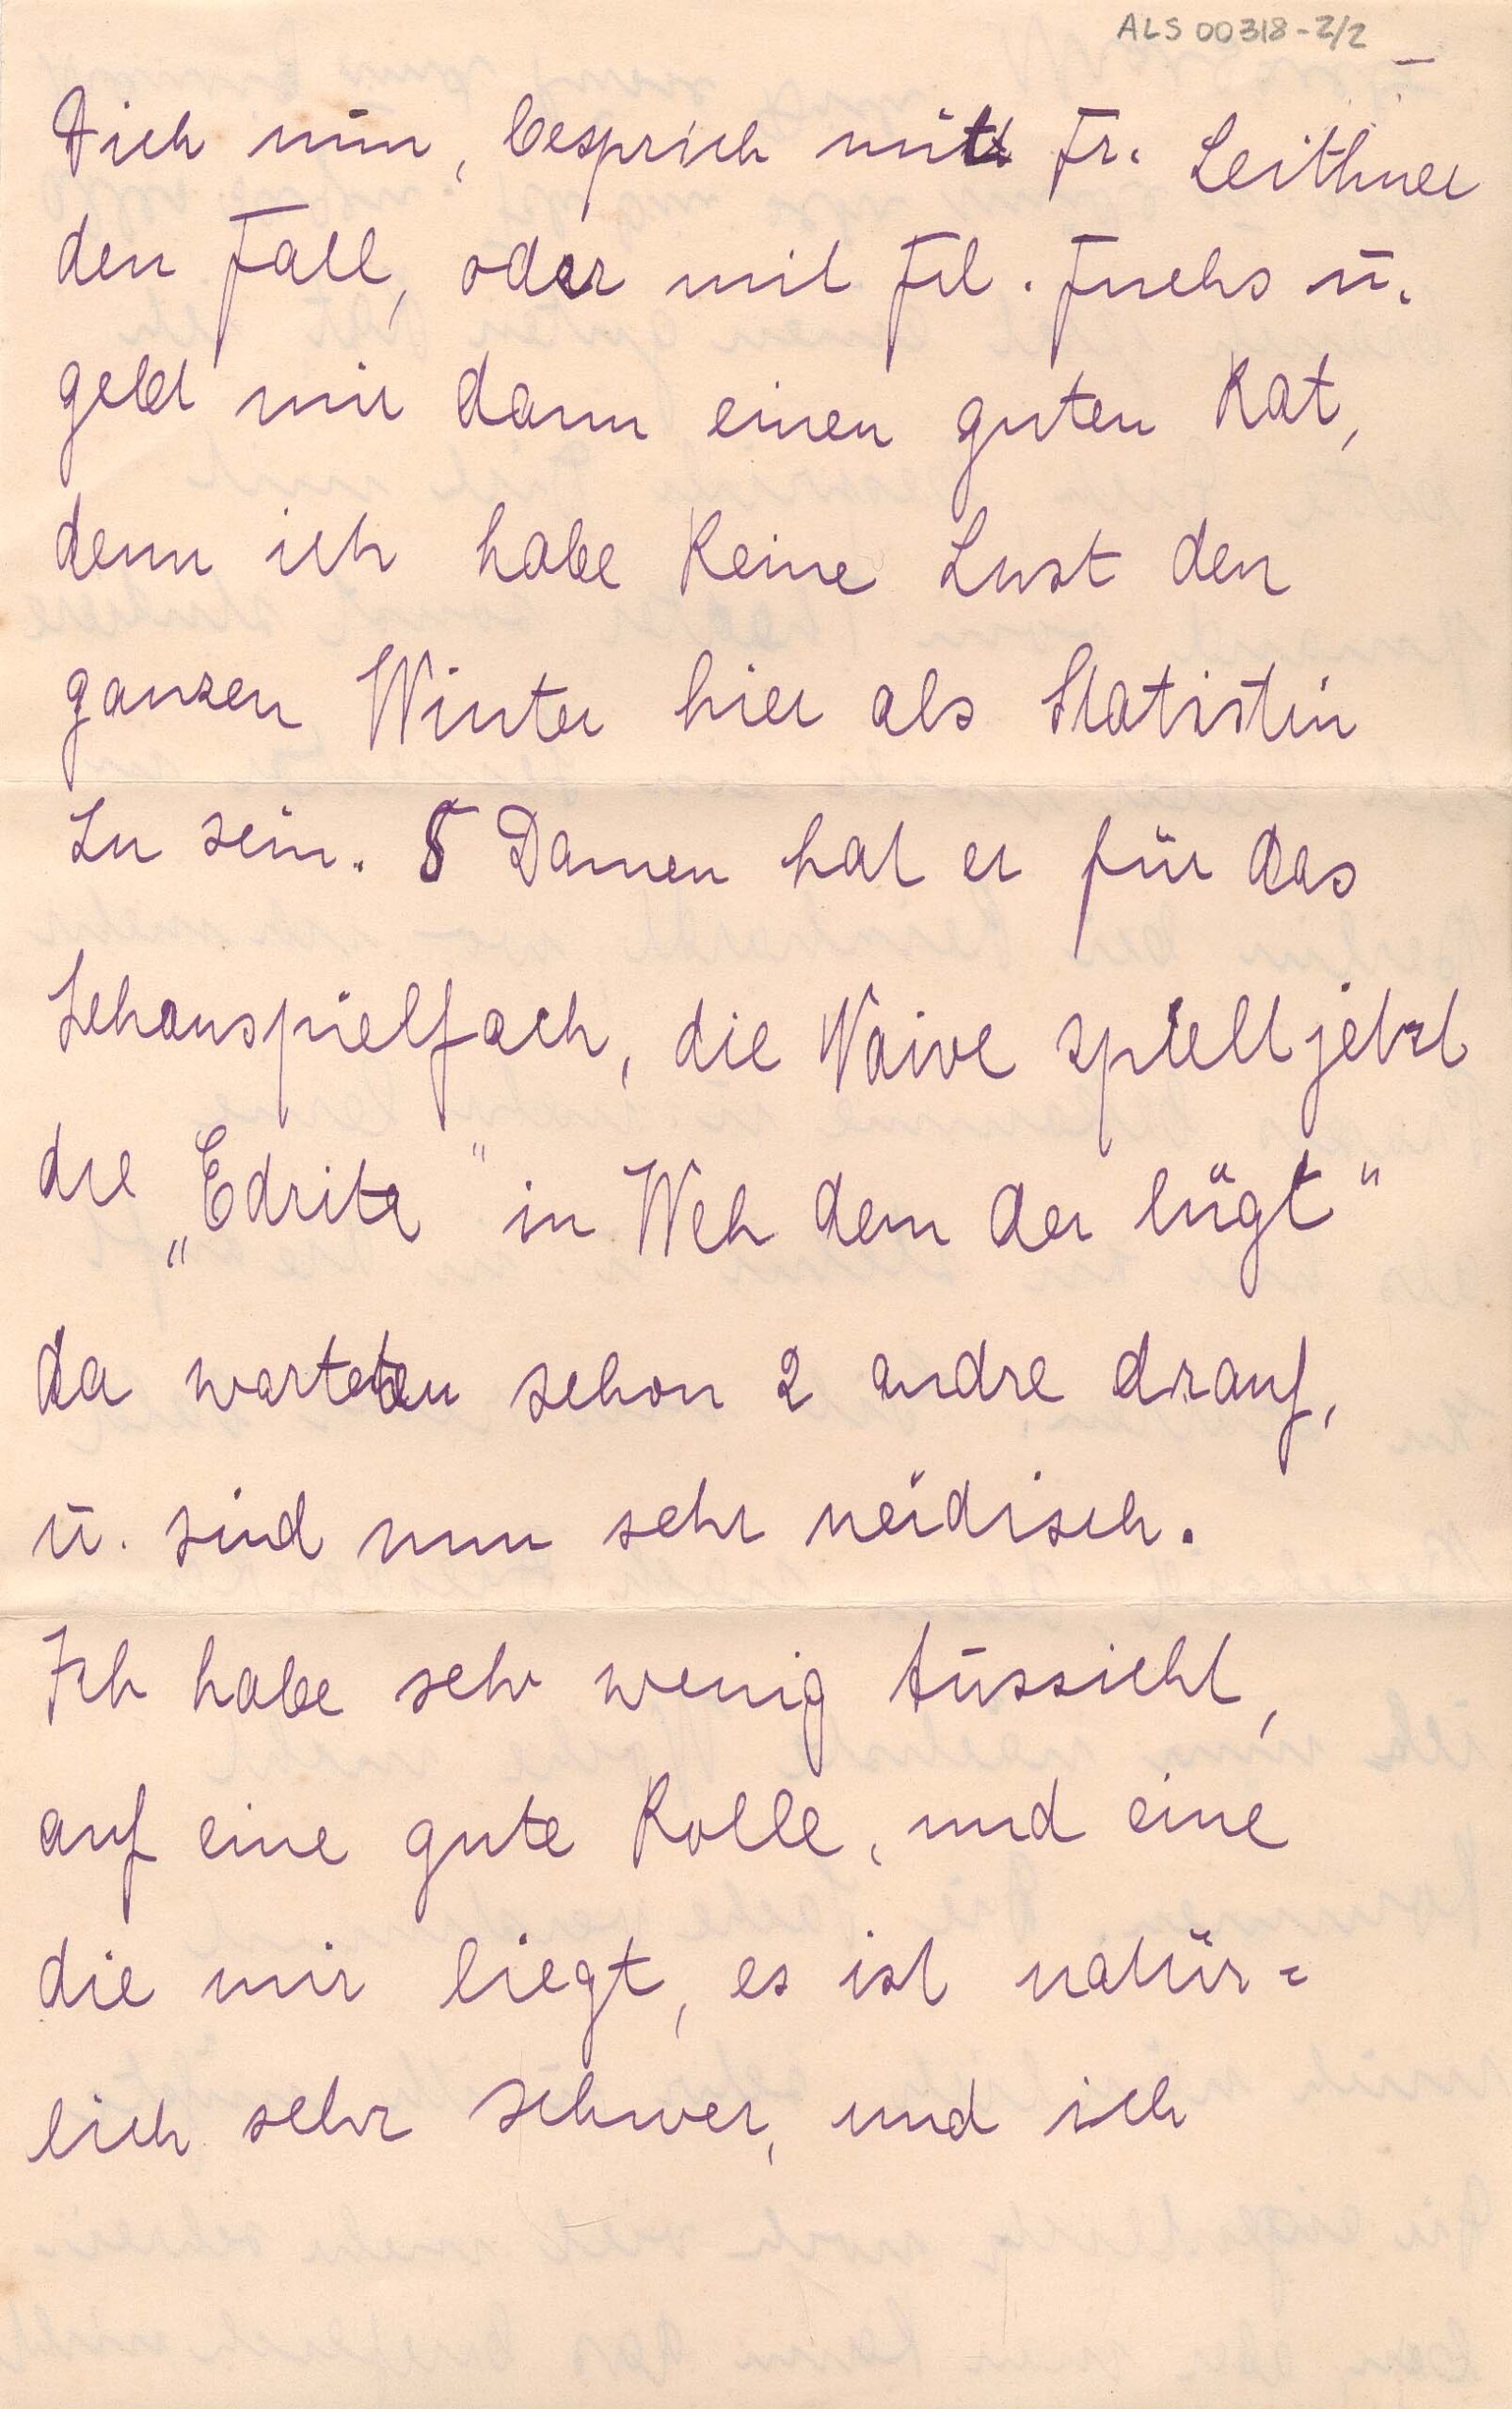 ALS 00318-2/2
Dich um, besprich mit Fr. Leithner
den Fall, oder mit Frl. Fuchs u.
gebt mir dann einen guten Rat,
denn ich habe keine Lust den
ganzen Winter hier als Statistin
zu sein. 5 Damen hat er für das
Schauspielfach, die Naive spielt jetzt
die „Edrita" in Weh dem der lügt"
da warteten schon 2 andre drauf,
u. sind nun sehr neidisch.
Ich habe sehr wenig Aussicht,
auf eine gute Rolle, und eine
die mir liegt, es ist natür=
lich sehr schwer, und ich